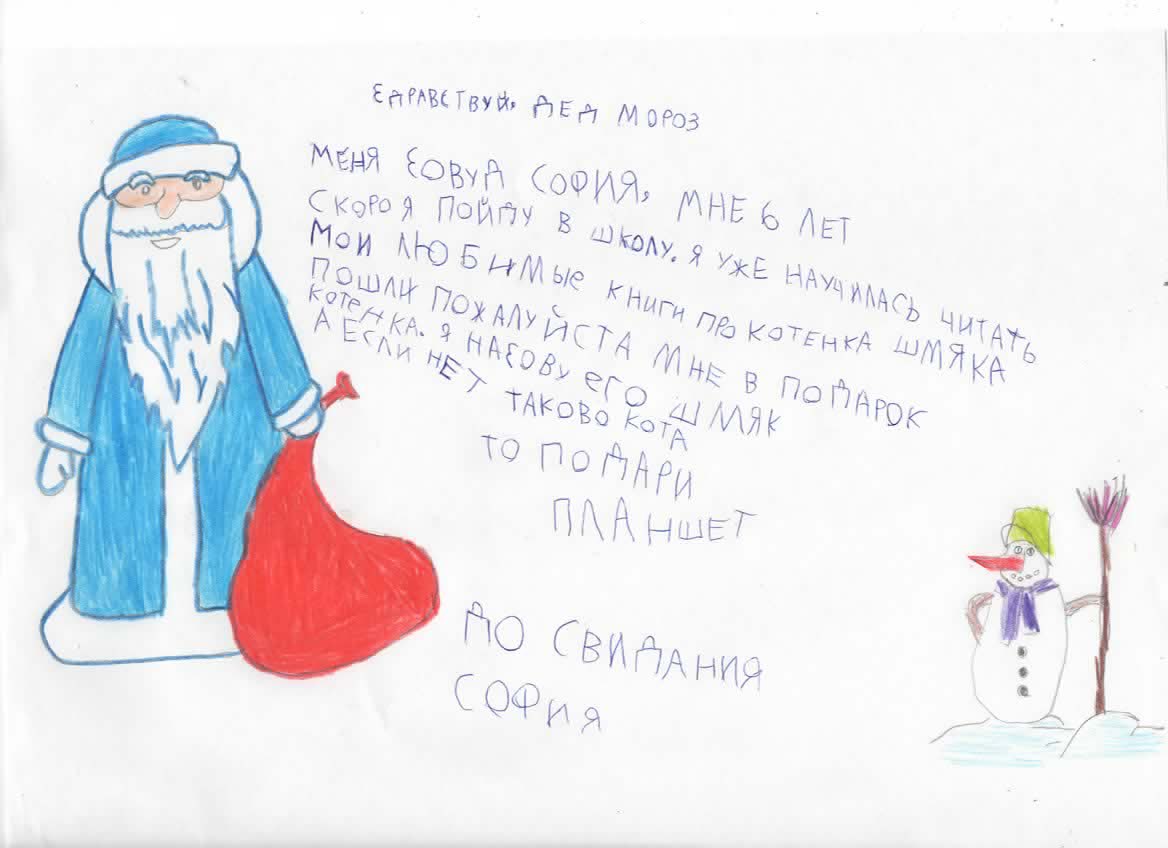 ЕДРАВСТВУЙ, ДЕД МОРОЗ
МЕНЯ ЕОВУД СОФИЯ, МНЕ 6 ЛЕТ
СКОРО Я ПОЙДУ В ШКОЛУ. Я УЖЕ НАУЧИЛАСЬ ЧИТАТЬ
МОИ ЛЮБИМЫЕ КНИГИ ПРО КОТЕНКА ШМЯКА
ПОШЛИ ПОЖАЛУЙСТА МНЕ В ПОДАРОК
КОТЕНКА. Я НАЕОВУ ЕГО ШМЯК
А ЕСЛИ НЕТ ТАКОВО КОТА
ТО ПОДАРИ
ПЛАНШЕТ
ДО СВИДАНИЯ
СОФИЯ